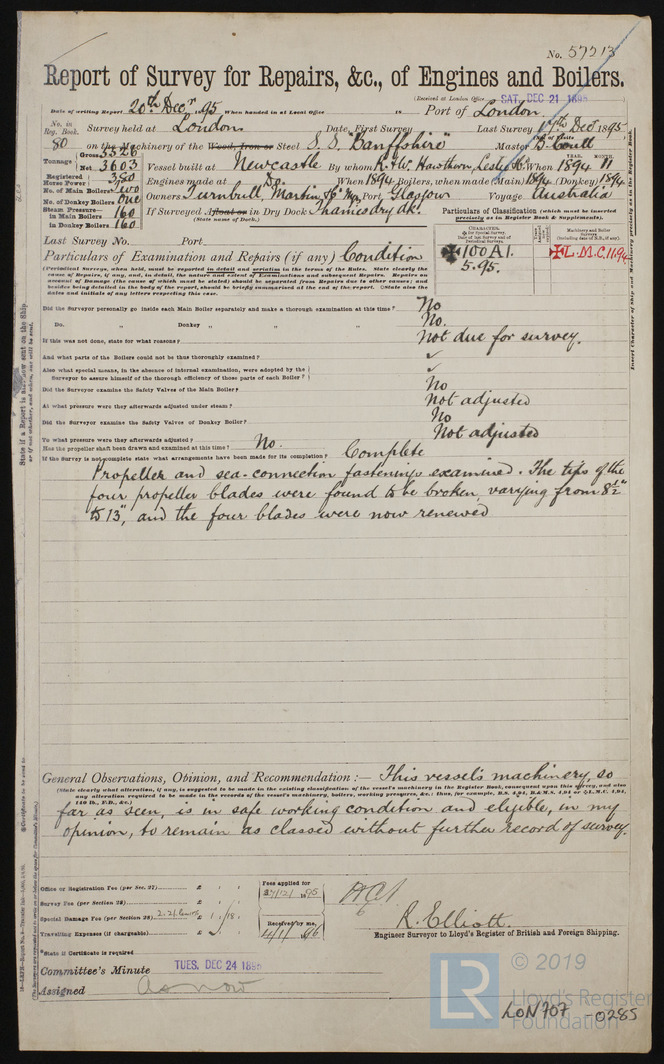 No. 57213
Report of Survey for Repairs, &c., of Engines and Boilers.
(Received at London Office SAT. DEC 21 1895)
Date of writing Report 20th Decr 1895 When handed in at Local Office 18 Port of London
No. in Reg. Book. Survey held at London Date First Survey Last Survey 17th Decr 1895
80 on the Machinery of the Wood, Iron or Steel S.S. "Banffshire" Master B. Coull
Tonnage Gross 5526 Net 3603
Vessel built at Newcastle By whom R. & W. Hawthorn, Leslie & Co. When 1894 YEAR. MONTH. 11
Registered Horse Power 380
Engines made at Do. When 1894 Boilers, when made (Main) 1894 (Donkey) 1894
No. of Main Boilers two
No. of Donkey Boilers One
Owners Turnbull, Martin & Co Port Glasgow Voyage Australia
Steam Pressure in Main Boilers 160
in Donkey Boilers 160
If Surveyed Afloat or in Dry Dock Thames dry dk.
(State name of Dock.)
Particulars of Classification (which must be inserted precisely as in Register Book & Supplements).
Last Survey No. Port
✠100A1. 5.95.
✠L.M.C. 11.94
Particulars of Examination and Repairs (if any) Condition
(Periodical Surveys, when held, must be reported in detail and seriatim in the terms of the Rules. State clearly the
cause of Repairs, if any, and, in detail, the nature and extent of Examinations and subsequent Repairs. Repairs on
account of Damage (the cause of which must be stated) should be separated from Repairs due to other causes; and
besides being detailed in the body of the report, should be briefly summarised at the end of the report. State also the
dates and initials of any letters respecting this case.
Did the Surveyor personally go inside each Main Boiler separately and make a thorough examination at this time? No
Do. " Donkey " " " No.
If this was not done, state for what reasons? Not due for survey.
And what parts of the Boilers could not be thus thoroughly examined? ✓
Also what special means, in the absence of internal examination, were adopted by the
Surveyor to assure himself of the thorough efficiency of those parts of each Boiler? ✓
Did the Surveyor examine the Safety Valves of the Main Boiler? No
At what pressure were they afterwards adjusted under steam? Not adjusted
Did the Surveyor examine the Safety Valves of Donkey Boiler? No
To what pressure were they afterwards adjusted? Not adjusted
Has the propeller shaft been drawn and examined at this time? No.
If the Survey is not complete state what arrangements have been made for its completion? Complete
Propeller and sea-connection fastenings examined. The tips of the
four propeller blades were found to be broken, varying from 8½"
to 13", and the four blades were now renewed
General Observations, Opinion, and Recommendation:— This vessel's machinery, so
(State clearly what alteration, if any, is suggested to be made in the existing classification of the vessel's machinery in the Register Book, consequent upon this survey, and also
any alteration required to be made in the records of the vessel's machinery, boilers, working pressures, &c.: thus, for example, B.S. 4,94, B.&M.S. 4,94 or ✠L.M.C. 4,94,
140 lb., F.D., &c.)
far as seen, is in safe working condition and eligible, in my
opinion, to remain as classed without further record of survey.
Office or Registration Fee (per Sec. 27) £
Survey Fee (per Section 28) £
Special Damage Fee (per Section 28) £
Travelling Expenses (if chargeable) £
Fees applied for 1895
Received by me,
R. Elliott.
Engineer Surveyor to Lloyd's Register of British and Foreign Shipping.
*State if Certificate is required
Committee's Minute TUES. DEC 24 1895
Assigned As now
LR
© 2019
Lloyd's Register
Foundation
LON707-0285